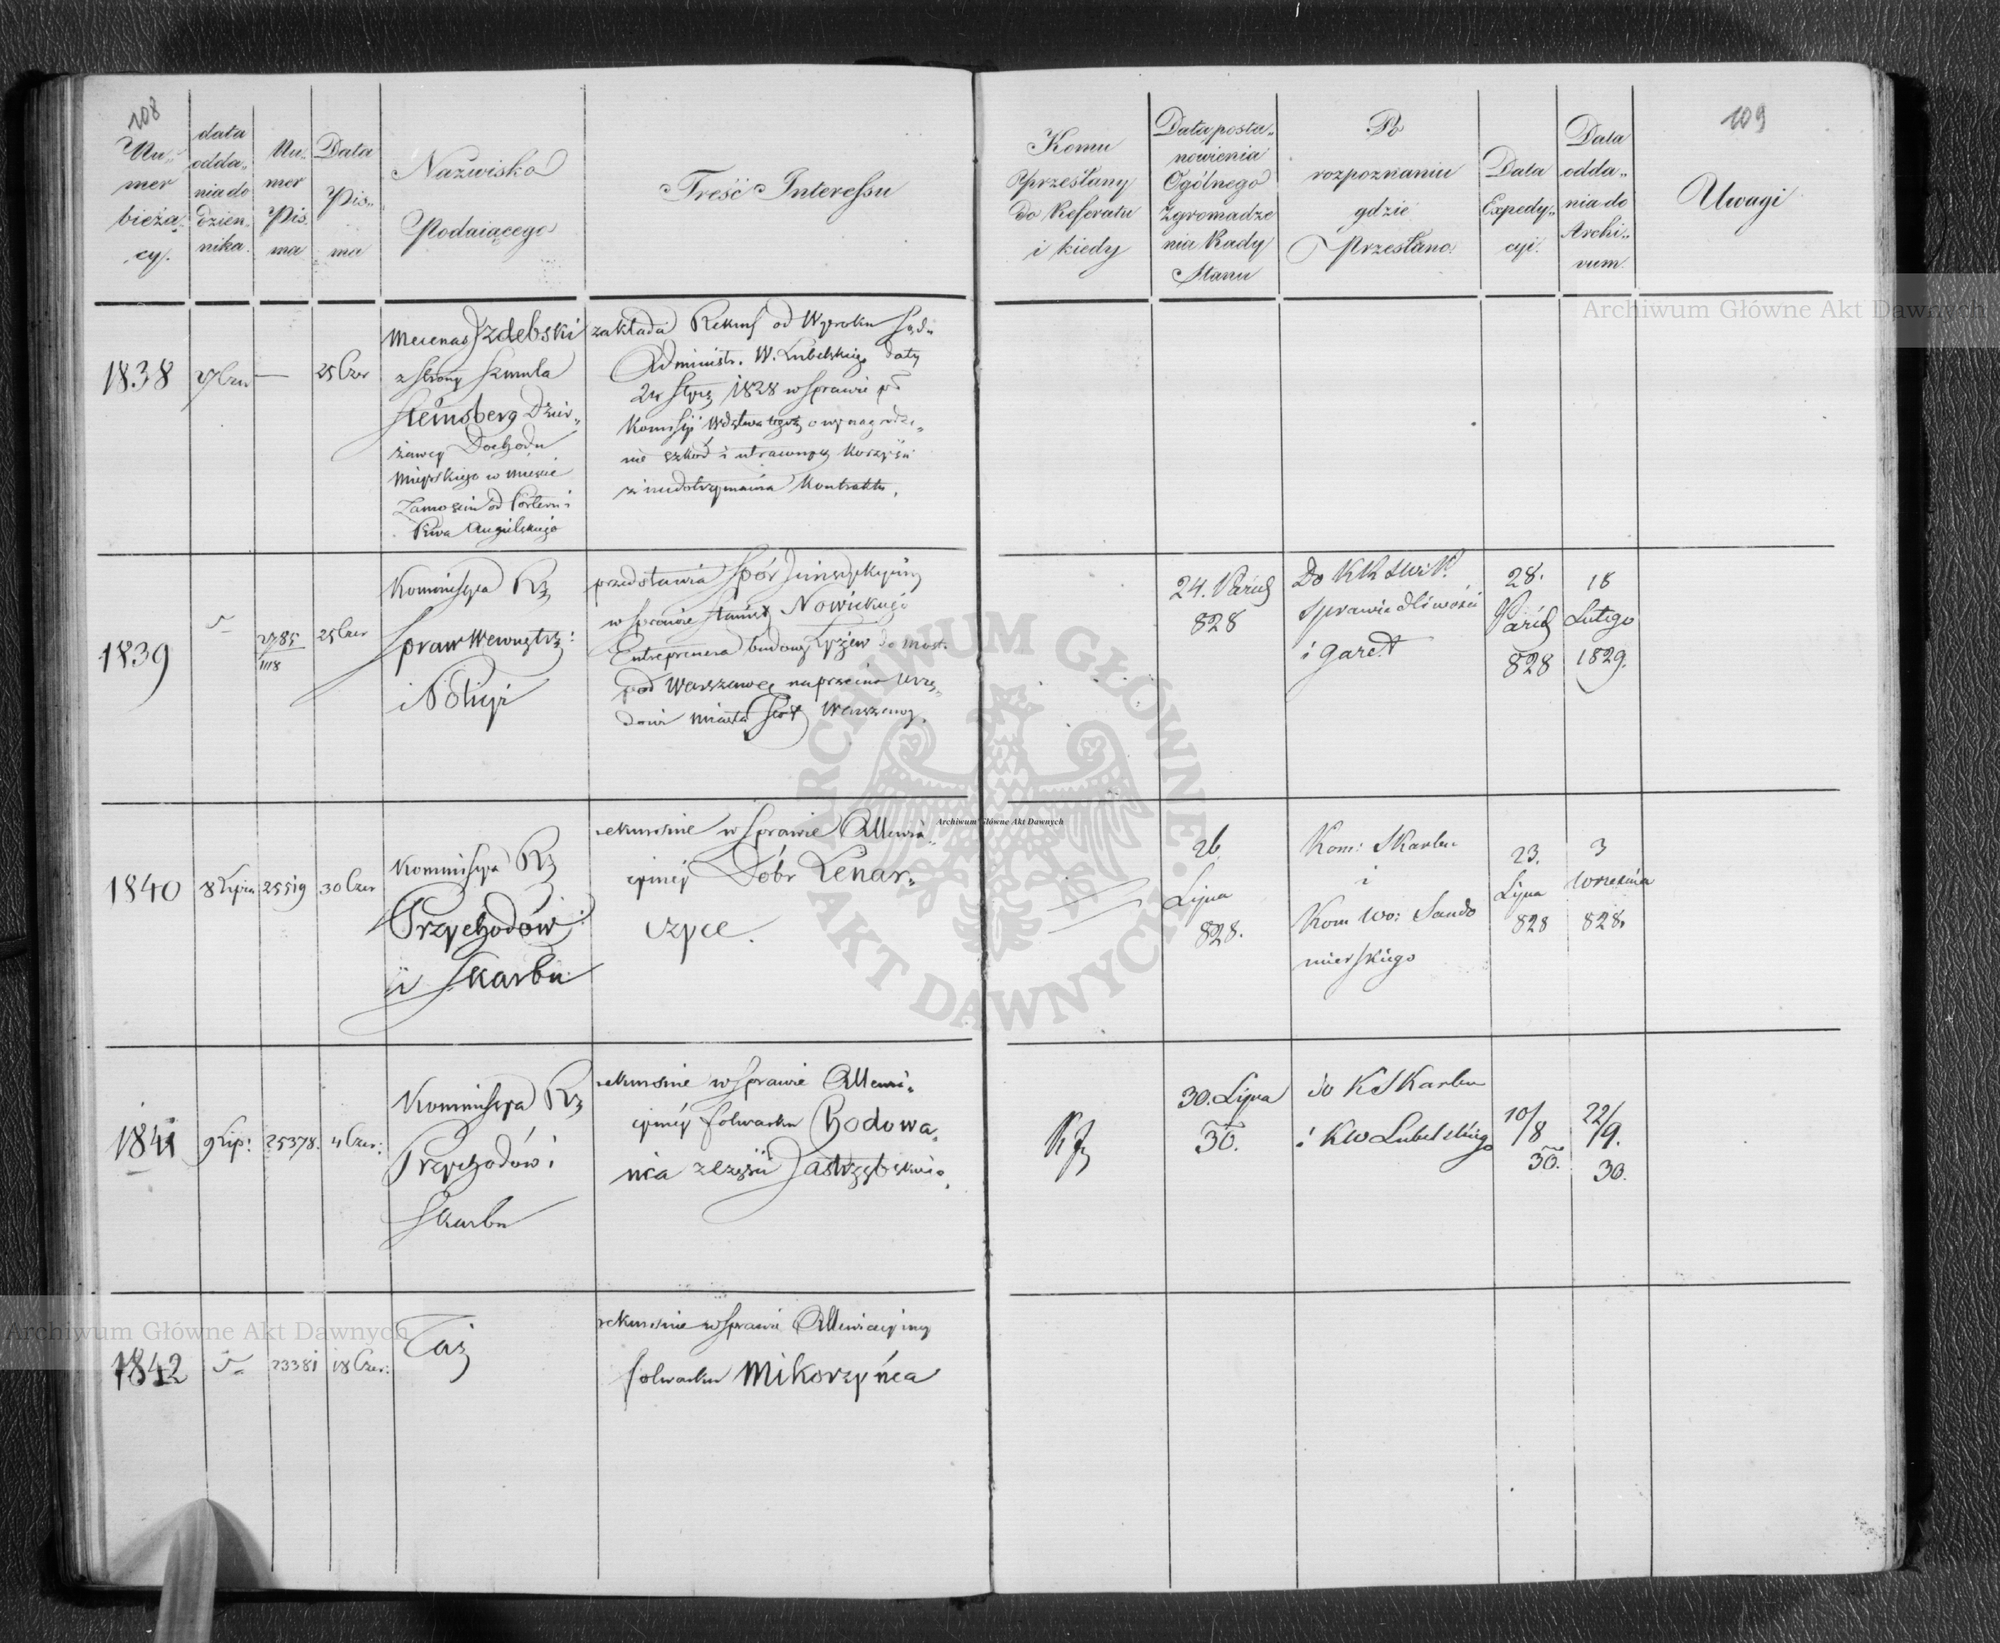 108
Nu-
mer
bieżą-
cy.
data
odda-
nia do
dzien-
nika.
Nu-
mer
Pis-
ma
Data
Pis-
ma
Nazwisko
Podaiącego
Treść Interessu
Komu
przesłany
do Referatu
i kiedy
Data posta-
nowienia
Ogólnego
Zgromadze
nia Rady
Stanu
Po
rozpoznaniu
gdzie
Przesłano.
Data
Expedy-
cyi.
Data
odda-
nia do
Archi-
vum.
109
Uwagi
1838
27 Czer
—
25 Czer
Mecenas Jzdebski
z strony Szmula
Steinsberg Dzier-
żawcy Dochodu
Miejskiego w mieście
Zamościu od Porteru i
Piwa Angielskiego
zakłada Rekurs od Wyroku Sądu
Administr. W. Lubelskiego daty
24 Stycz 1828 w sprawie pko
Kommissyi Wdztwa tegoż o wynagrodze-
nie szkód i utraconych korzyści
z niedotrzymania Kontraktu.
1839
2785/1118
25 Czer
Kommissya Rz
Spraw Wewnętrz:
i Policyi
przedstawia Spór Jurisdykcyiny
w sprawie Stanisł Nowickiego
Entreprenera budowy Łyżew do most.
pod Warszawą naprzeciw Urzę-
dowi miasta Stoł Warszawy.
24. Paźdz
828
Do KRSWiP.
Sprawiedliwości
i garet
28.
Paźdz
828
18
Lutego
1829.
1840
8 Lipca
25519
30 Czer
Kommissya Rz
Przychodów
i Skarbu
rekursuie w sprawie Allewia-
cyiney Dóbr Lenar-
czyce.
26
Lipca
828.
Kom: Skarbu
i
Kom Wo: Sando
mierskiego
23.
Lipca
828
3
Września
828.
1841
9 Lip:
25378.
4 Czer:
Kommissya Rz
Przychodów i
Skarbu
rekursuie w sprawie Allewia-
cyiney folwarku Chodowa-
nia z części Jastrzębskiego.
30. Lipca
30.
do KSkarbu
i KW Lubelskiego
10/8
30.
22/9.
30.
1842
23381
18 Czer:
Taż
rekursuie w sprawie Allewiacyiney
folwarku Mikorzyńca
Archiwum Główne Akt Dawnych
ARCHIWUM GŁÓWNE AKT DAWNYCH
Archiwum Główne Akt Dawnych
Archiwum Główne Akt Dawnych